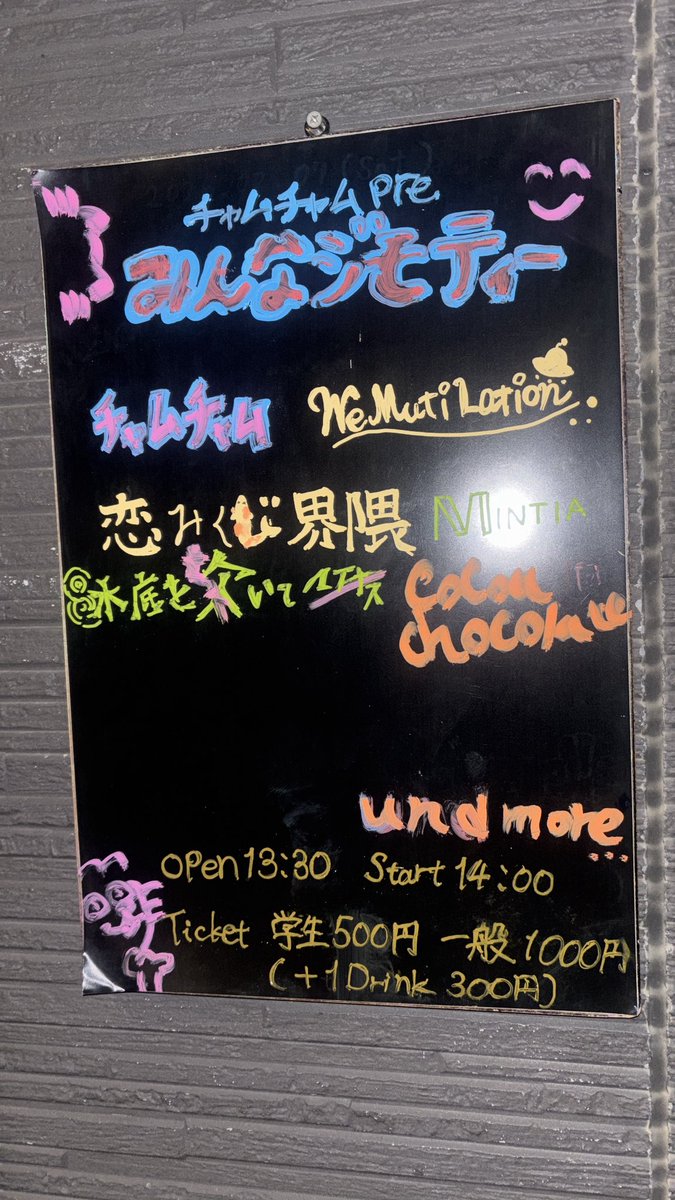 チャムチャム pre.
みんなジモティー
チャムチャム
We Muti Lation
恋みくじ界隈
MINTIA
水底を泳いで
chocolate
und more...
open 13:30 Start 14:00
Ticket 学生500円 一般1000円
(+1 Drink 300円)